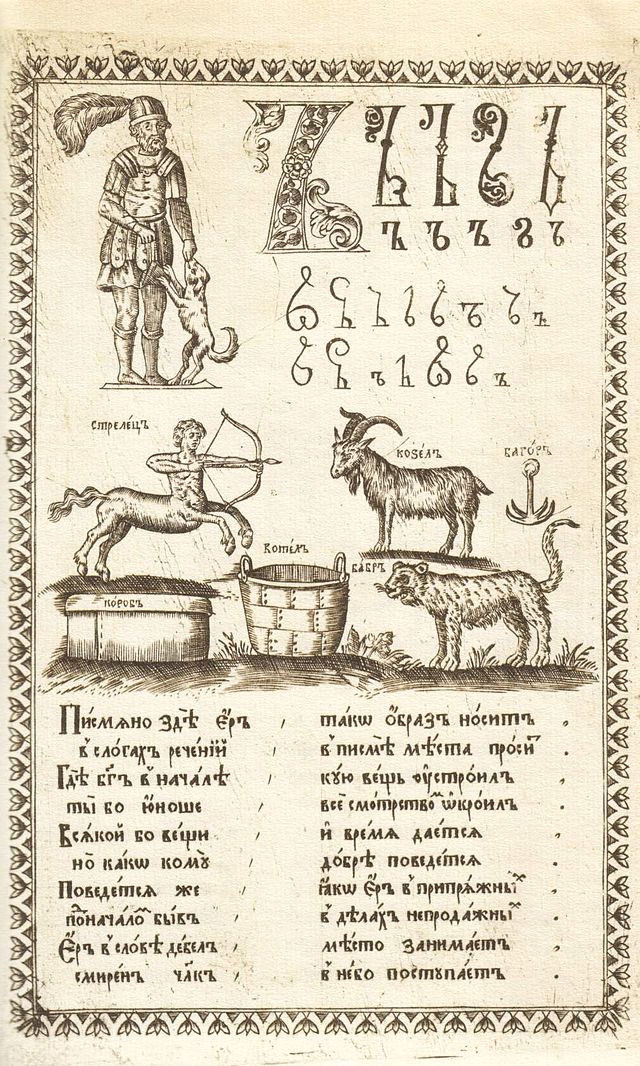 Ъ Ъ Ъ Ъ Ъ
ъ ъ ъ ъ ъ
ъ ъ ъ ъ ъ ъ ъ ъ
ъ ъ ъ ъ ъ ъ ъ
стрелѐцъ
коѕе́лъ
баго́ръ
коте́лъ
ба́бръ
ко́робъ
Пи́смѧно здѣ̀ є҆́ръ , та́кѡ ѻ҆́бразъ но́ситъ ,
в̾ сло́гахъ рече́нїй , в̾ письмѣ̀ мѣ́ста про́ситъ .
Гдѣ̀ бг҃ъ в̾ нача́лѣ , ку́ю ве́щь ᲂу҆стро́илъ ,
ты̀ бо ю҆́ноше , всѐ смо́трство ѡ҆кро́илъ .
Всѧ́кой бо ве́щи , и҆ вре́мѧ дае́тсѧ ,
но̀ ка́кѡ кому̀ , до́брѣ поведе́тсѧ .
Поведе́тсѧ же , ꙗ҆́кѡ є҆́ръ в̾ припрѧ́жных ,
по нача́лѡ бы́въ , в̾ дѣ́лахъ непрода́жных .
Є҆́ръ в̾ сло́вѣ де́белъ , мѣ́сто занима́етъ ,
смире́нъ чл҃къ , в̾ не́бо поступа́етъ .